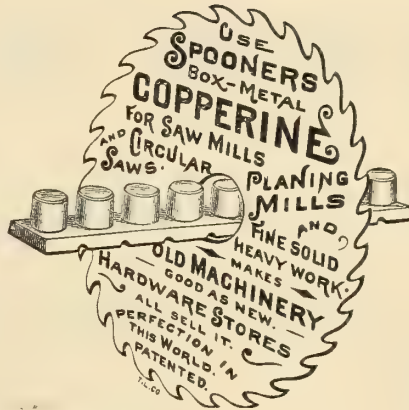 USE
SPOONERS
BOX-METAL
COPPERINE
FOR SAW MILLS
AND CIRCULAR
SAWS.
PLANING
MILLS
AND
FINE SOLID
HEAVY WORK.
MAKES
OLD MACHINERY
GOOD AS NEW.
HARDWARE STORES
ALL SELL IT.
PERFECTION IN
THIS WORLD.
PATENTED.
T.L.CO